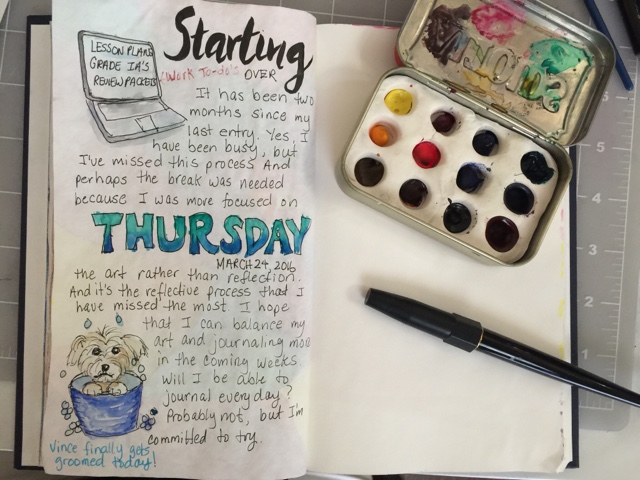 Starting
OVER
(Work To-do's
LESSON PLANS
GRADE IA'S
REVIEW PACKETS
It has been two
months since my
last entry. Yes, I
have been busy, but
I've missed this process And
perhaps the break was needed
because I was more focused on
THURSDAY
MARCH 24, 2016
the art rather than reflection.
And it's the reflective process that I
have missed the most. I hope
that I can balance my
art and journaling more
in the coming weeks
Will I be able to
journal everyday?
Probably not, but I'm
committed to try.
Vince finally gets
groomed today!
ALTOIDS
5
4
3
2
1